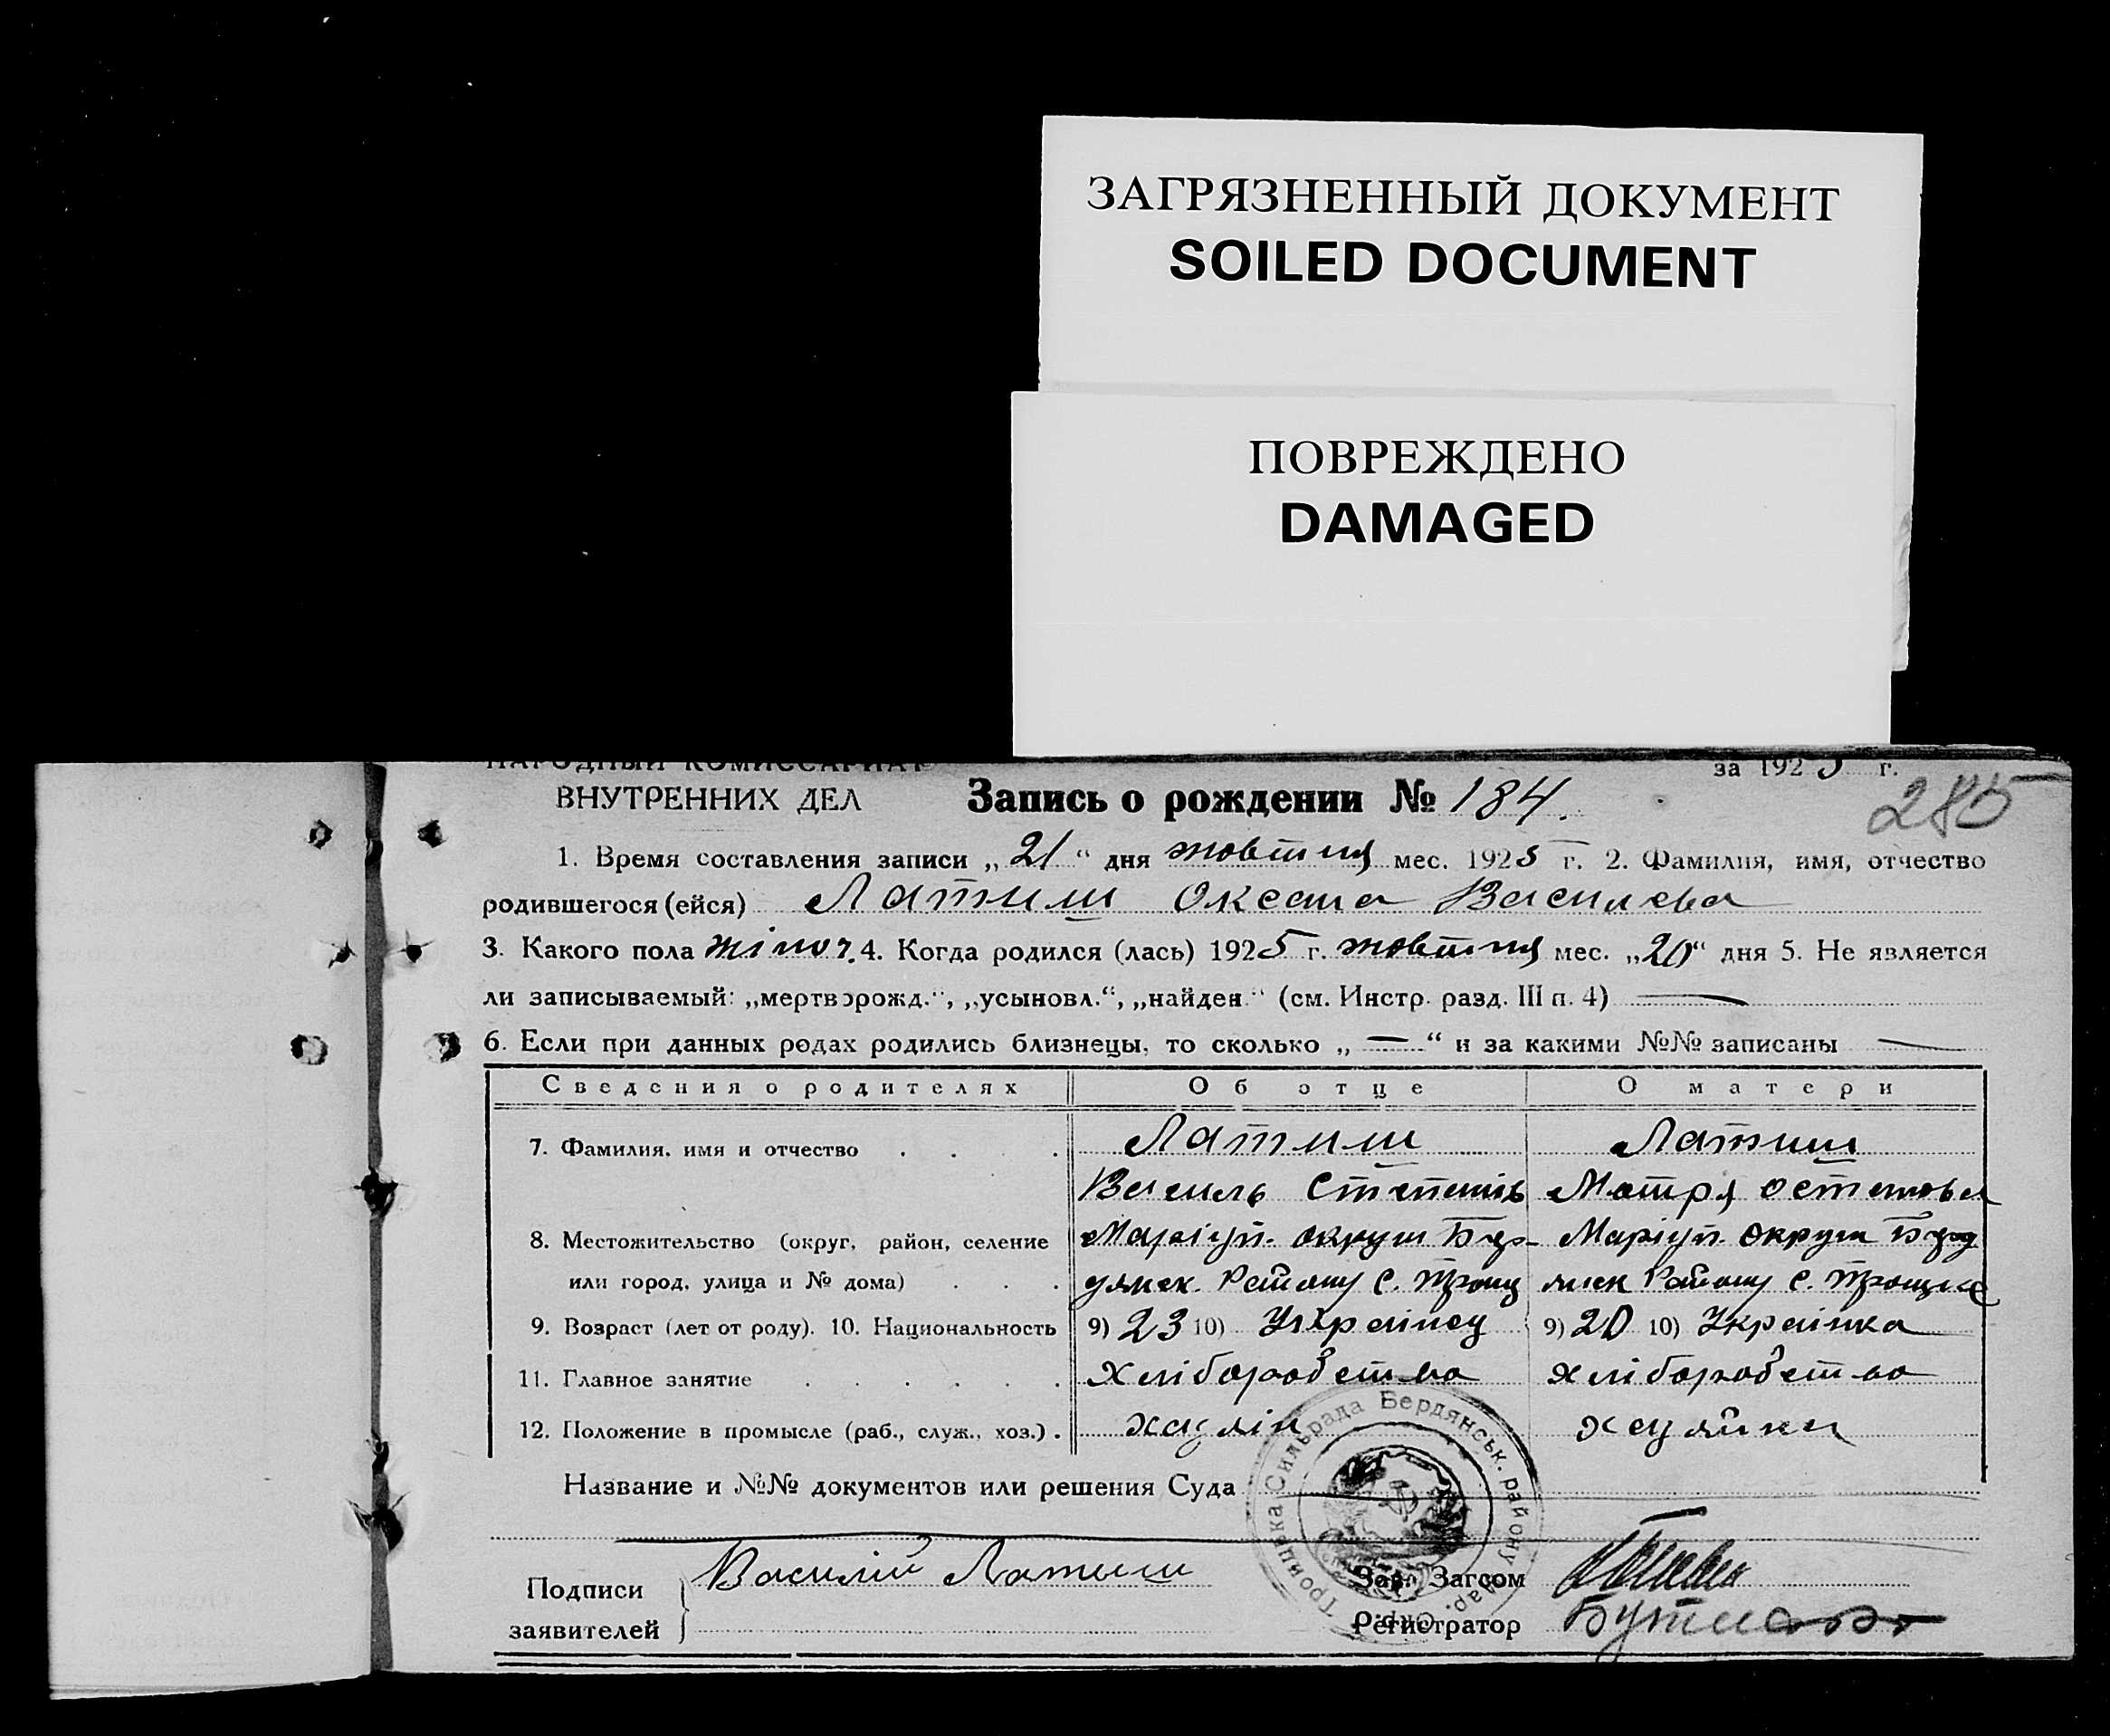 ЗАГРЯЗНЕННЫЙ ДОКУМЕНТ
SOILED DOCUMENT
ПОВРЕЖДЕНО
DAMAGED
НАРОДНЫЙ КОМИССАРИАТ за 1925 г.
ВНУТРЕННИХ ДЕЛ Запись о рождении № 184. 285
1. Время составления записи „21“ дня жовтня мес. 1925 г. 2. Фамилия, имя, отчество
родившегося (ейся) Латиш Оксана Василева
3. Какого пола жіноч. 4. Когда родился (лась) 1925 г. жовтня мес. „20“ дня 5. Не является
ли записываемый: „мертворожд.“, „усыновл.“, „найден.“ (см. Инстр. разд. III п. 4) —
6. Если при данных родах родились близнецы, то сколько „—“ и за какими №№ записаны —
Сведения о родителях Об отце О матери
7. Фамилия, имя и отчество . . . Латиш Латиш
Василь Степанів Мотря Остапова
8. Местожительство (округ, район, селение Маріуп. округи Бер- Маріуп. округи Берд
или город, улица и № дома) . . . дянск. Району с. Троиц янск Району с. Троицке
9. Возраст (лет от роду). 10. Национальность 9) 23 10) Українец 9) 20 10) Українка
11. Главное занятие . . . . . . Хліборобство хліборобство
12. Положение в промысле (раб., служ., хоз.) . хазяін хазяйка
Название и №№ документов или решения Суда
Троицька Сильрада Бердянськ. району Мар. Окр.
Подписи Василій Латиш Зав. Загсом
заявителей Регистратор